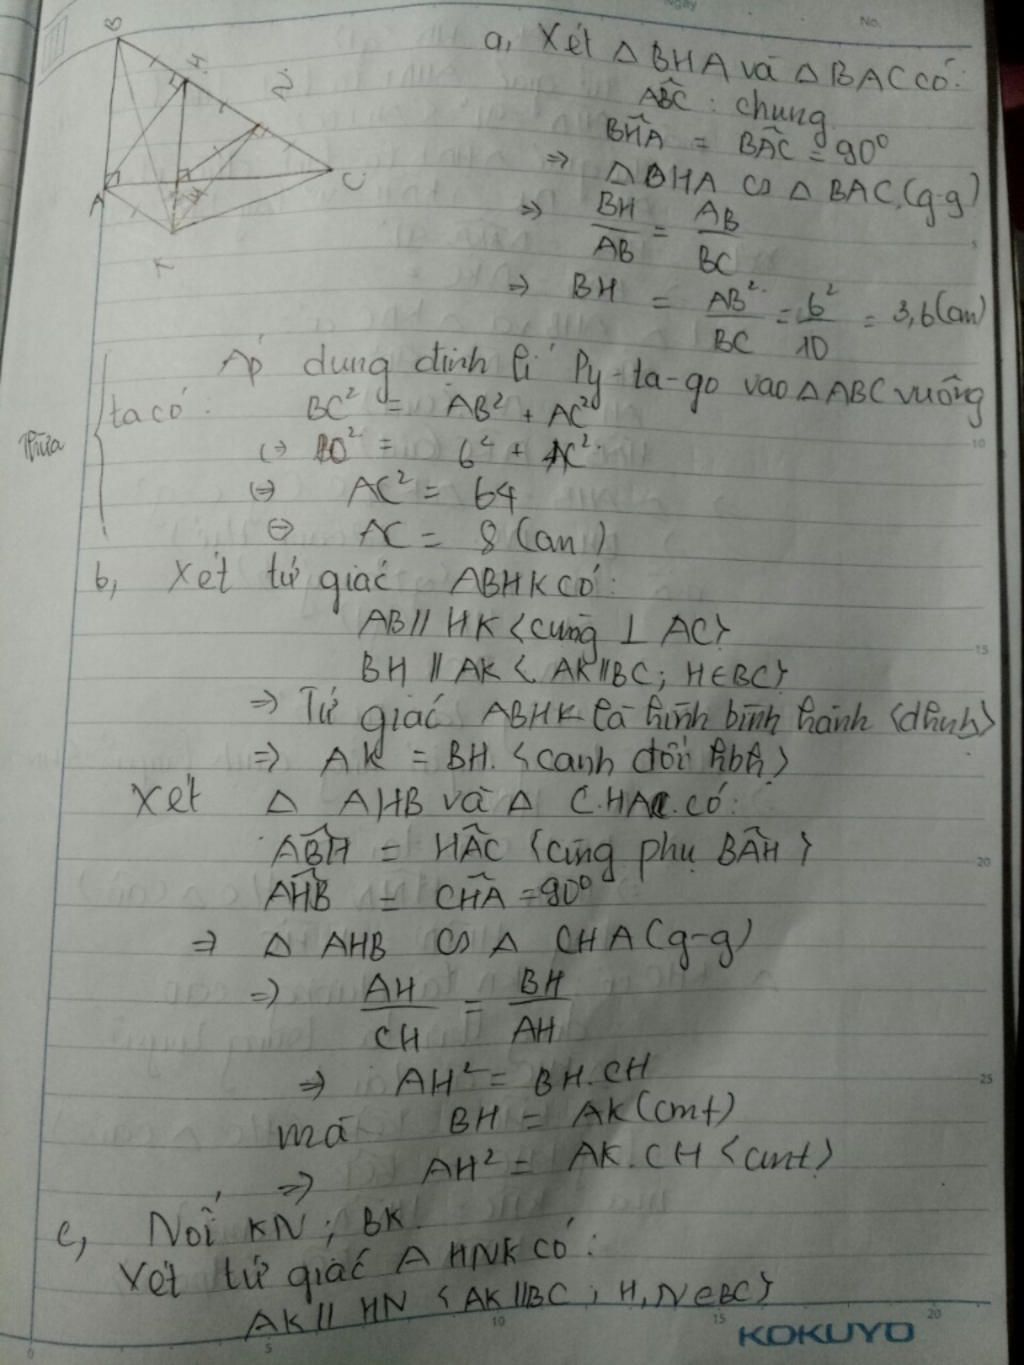 No.
B
H
N
A
M
C
K
a, Xét △BHA và △BAC có:
ABC : chung
BHA = BAC = 90°
⇒ △BHA ∽ △BAC (g-g)
⇒ BH/AB = AB/BC
⇒ BH = AB²/BC = 6²/10 = 3,6 (cm)
Áp dung định lí Py-ta-go vao △ABC vuông
ta có : BC² = AB² + AC²
Thừa
(⇒ 10² = 6² + AC²
⇔ AC² = 64
⇔ AC = 8 (cm)
b, Xét tứ giác ABHK có:
AB // HK <cùng ⊥ AC>
BH // AK <AK//BC; H∈BC>
⇒ Tứ giác ABHK là hình bình hành <dhnb>
⇒ AK = BH. <canh đối hbh>
Xét △ AHB và △ CHA có:
ABH = HAC <cùng phụ BAH>
AHB = CHA = 90°
⇒ △ AHB ∽ △ CHA (g-g)
⇒ AH/CH = BH/AH
⇒ AH² = BH.CH
mà BH = AK (cmt)
⇒ AH² = AK.CH <cmt>
c, Nối KN ; BK.
Xét tứ giác AHNK có:
AK // HN <AK//BC ; H,N∈BC>
KOKUYO